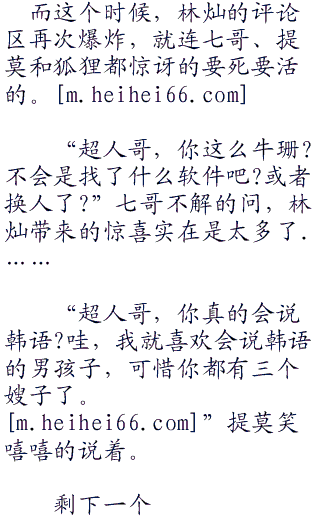 而这个时候，林灿的评论
区再次爆炸，就连七哥、提
莫和狐狸都惊讶的要死要活
的。[m.heihei66.com]
“超人哥，你这么牛珊?
不会是找了什么软件吧?或者
换人了?”七哥不解的问，林
灿带来的惊喜实在是太多了.
……
“超人哥，你真的会说
韩语?哇，我就喜欢会说韩语
的男孩子，可惜你都有三个
嫂子了。
[m.heihei66.com]”提莫笑
嘻嘻的说着。
剩下一个